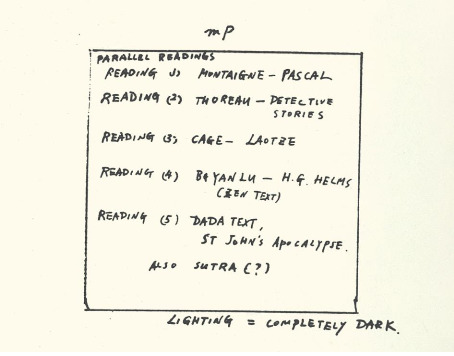 mP
PARALLEL READINGS
READING 1) MONTAIGNE - PASCAL
READING (2) THOREAU - DETECTIVE
STORIES
READING (3) CAGE - LAOTZE
READING (4) BIYANLU - H.G. HELMS
(ZEN TEXT)
READING (5) DADA TEXT,
ST JOHN'S APOCALYPSE.
ALSO SUTRA (?)
LIGHTING = COMPLETELY DARK.